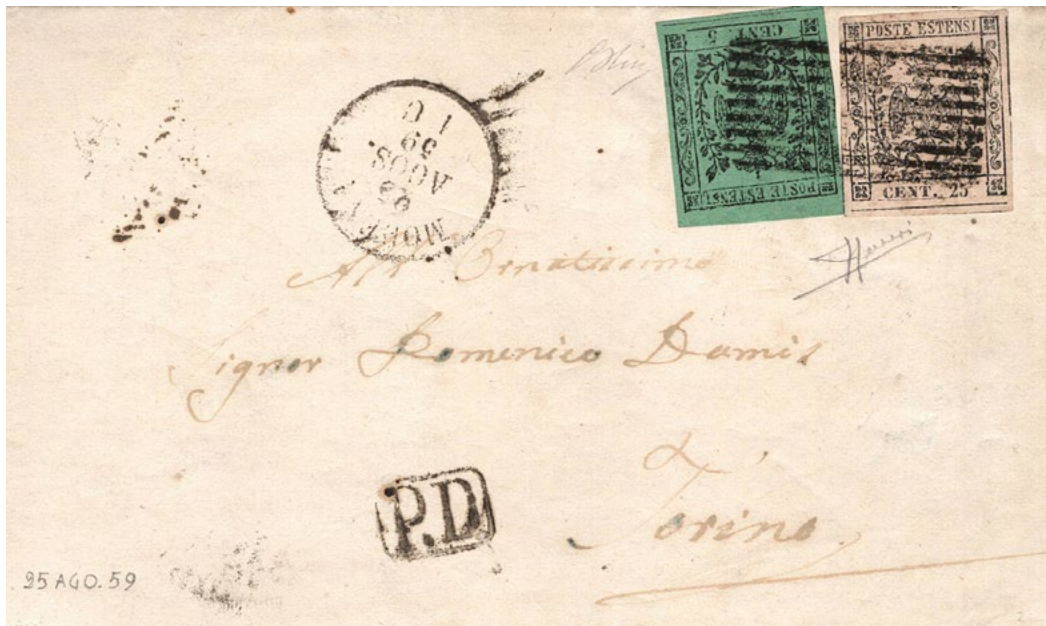 POSTE ESTENSI
CENT. 25
POSTE ESTENSI
CENT 5
MODENA
25
AGOS.
59
All' Ornatissimo
Signor Domenico Damis
Torino
P.D
25 AGO. 59